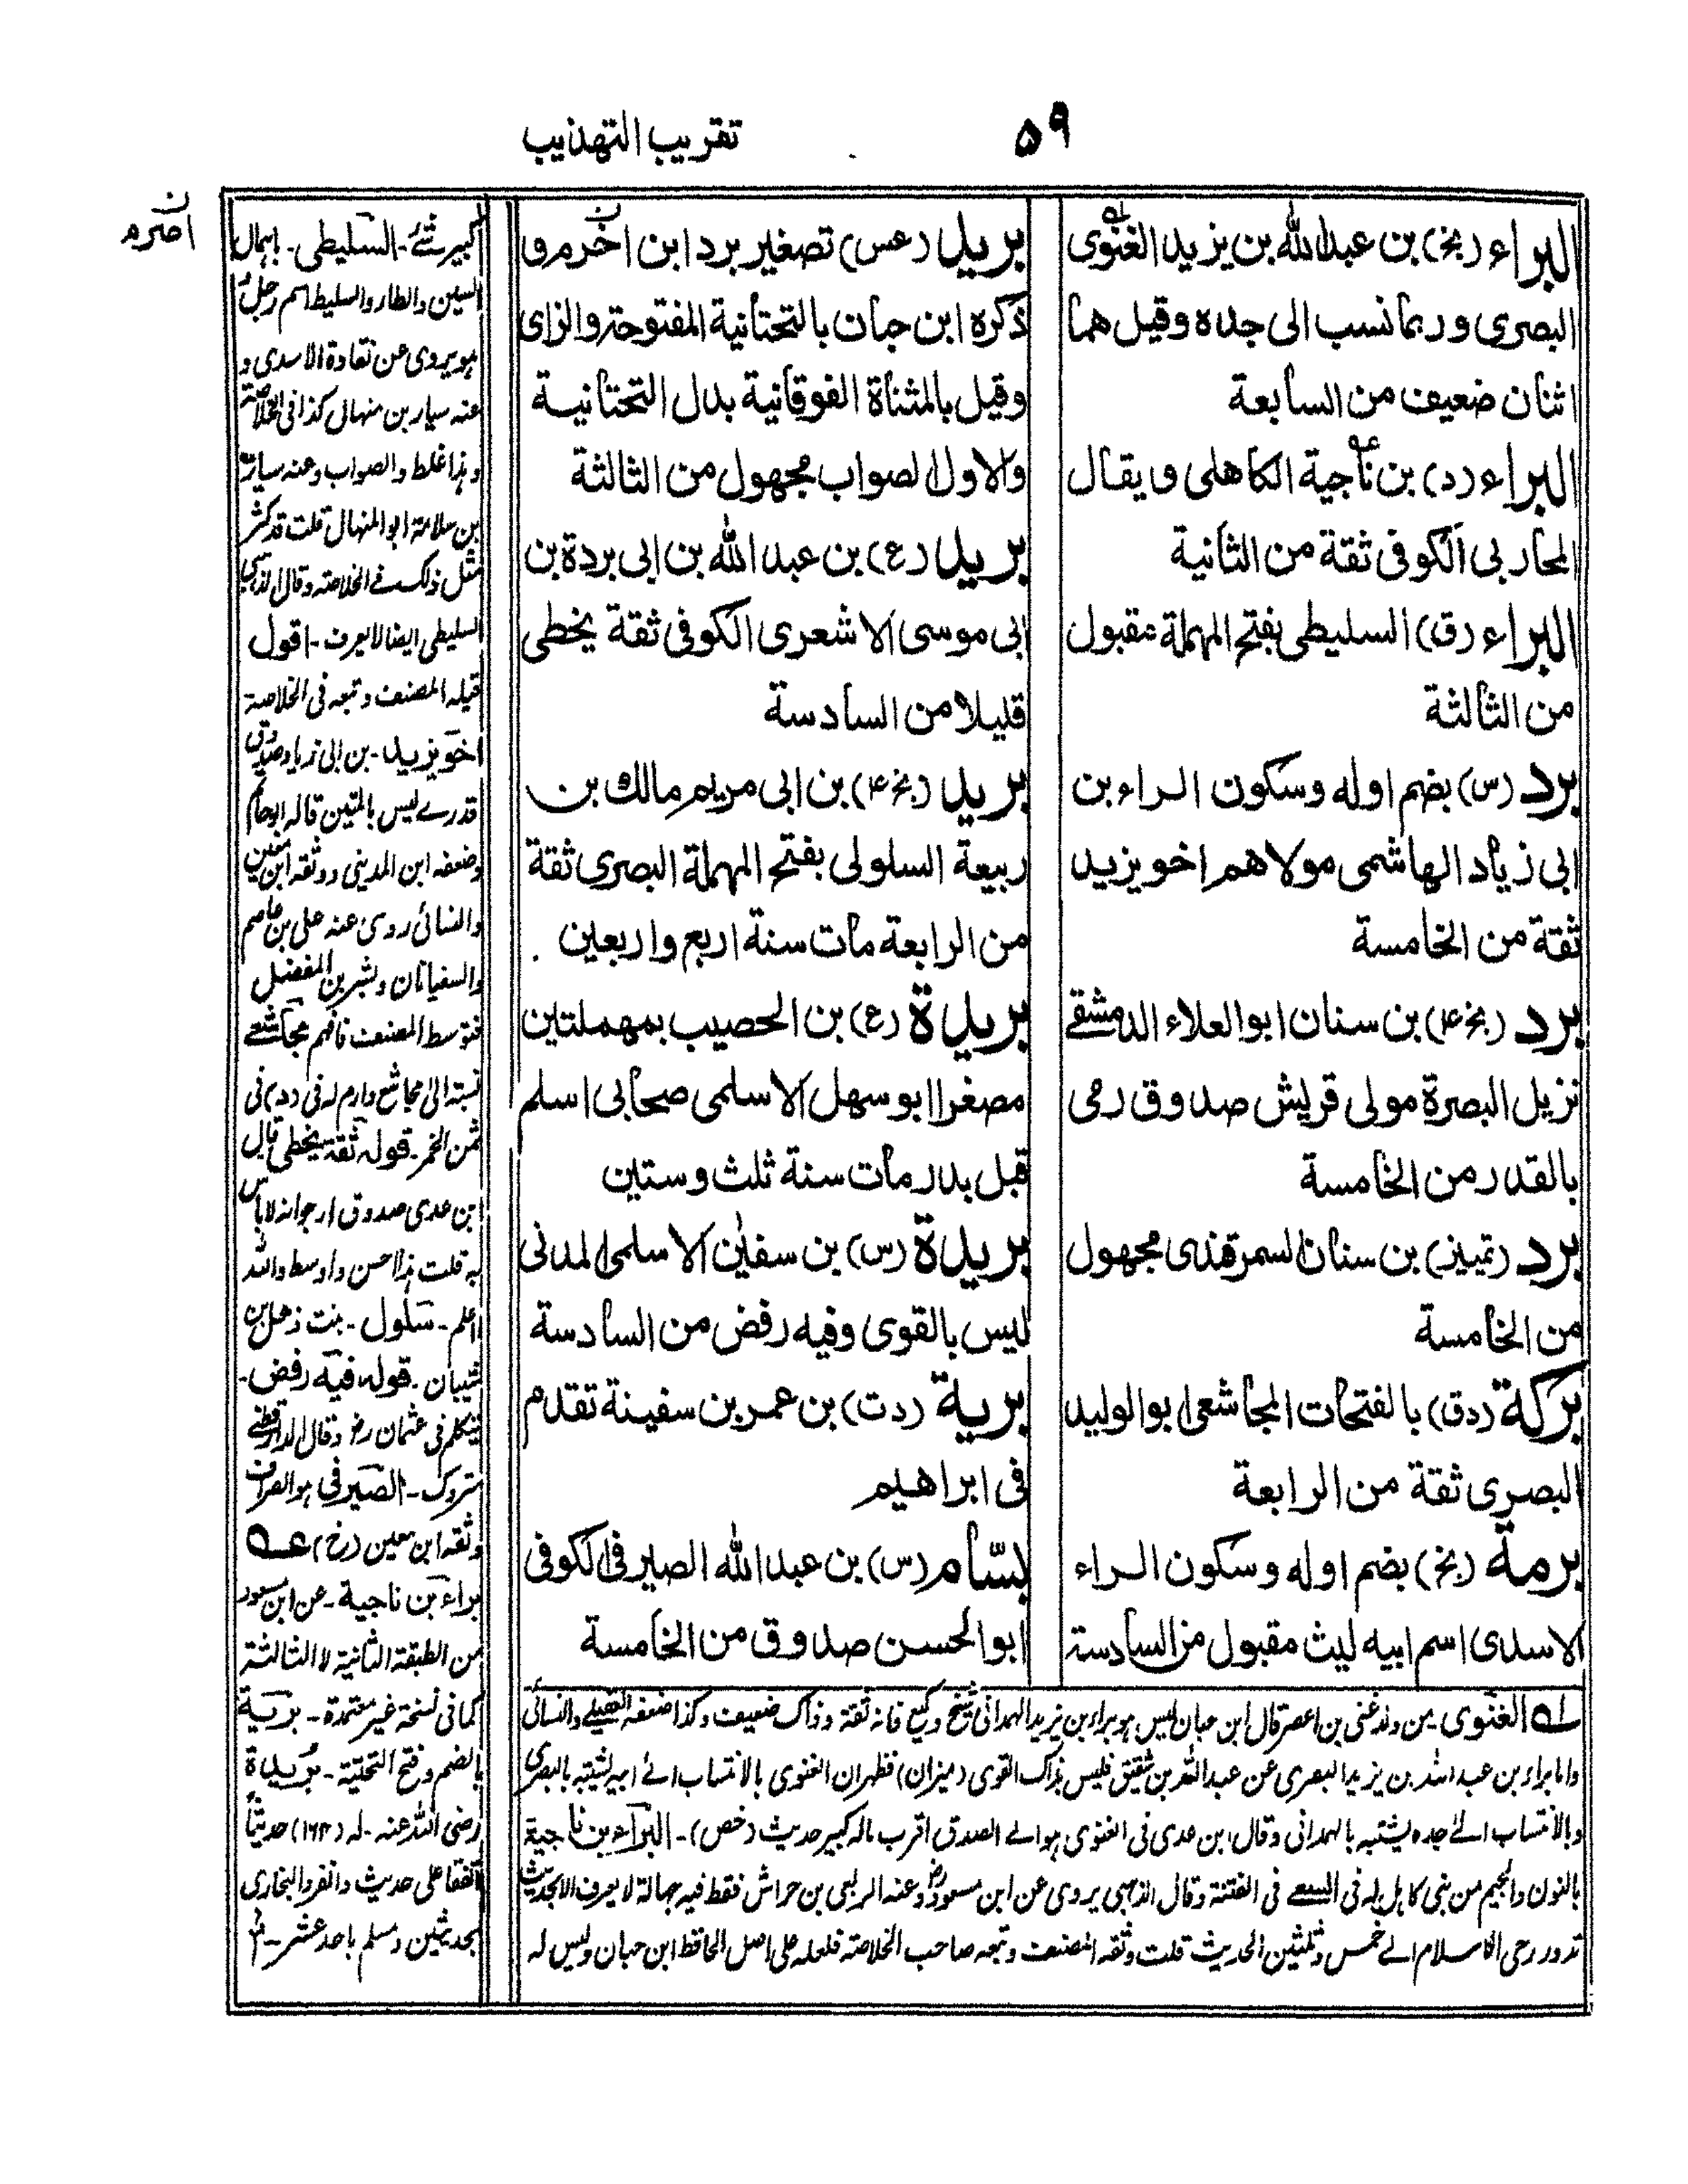 ۵۹
تقريب التهذيب
البراء (بخ) بن عبدالله بن يزيد الغنوى
البصرى وربما نسب الى جده وقيل هما
اثنان ضعيف من السابعة
البراء (د) بن ناجية الكاهلى ويقال
المحاربى الكوفى ثقة من الثانية
البراء (ق) السليطى بفتح المهملة مقبول
من الثالثة
برد (س) بضم اوله وسكون الراء بن
ابى زياد الهاشمى مولاهم اخو يزيد
ثقة من الخامسة
برد (بخ ۴) بن سنان ابو العلاء الدمشقے
نزيل البصرة مولى قريش صدوق رمى
بالقدر من الخامسة
برد (تمييز) بن سنان السمرقندى مجهول
من الخامسة
بركة (دق) بالفتحات المجاشعى ابو الوليد
البصرى ثقة من الرابعة
برمة (بخ) بضم اوله وسكون الراء
الاسدى اسم ابيه ليث مقبول من السادسة
بريد (عس) تصغير برد ابن اخرم و
ذكره ابن حبان بالتحتانية المفتوحة والزاى
وقيل بالمثناة الفوقانية بدل التحتانية
والاول الصواب مجهول من الثالثة
بريد (ع) بن عبد الله بن ابى بردة بن
ابى موسى الاشعرى الكوفى ثقة يخطى
قليلا من السادسة
بريد (بخ ۴) بن ابى مريم مالك بن
ربيعة السلولى بفتح المهملة البصرى ثقة
من الرابعة مات سنة اربع واربعين
بريدة (ع) بن الحصيب بمهملتين
مصغرا ابو سهل الاسلمى صحابى اسلم
قبل بدر مات سنة ثلث وستين
بريدة (س) بن سفيٰن الاسلمى المدنى
ليس بالقوى وفيه رفض من السادسة
برية (دت) بن عمر بن سفينة تقدم
فى ابراهيم
بسّام (س) بن عبد الله الصيرفى الكوفى
ابو الحسن صدوق من الخامسة
لـه الغنوى۔ من ولد غنى بن اعصر قال ابن حبان ليس هو براء بن يزيد الهمدانى شيخ وكيع فانه ثقة وذاك ضعيف وكذا ضعفه العقيلے والنسائى
واما براء بن عبد الله بن يزيد البصرى عن عبد الله بن شقيق فليس بذاك القوى (ميزان) فظهر ان الغنوى بالانتساب الے ابيه يشتبه بالبصرى
وبالانتساب الے جده يشتبه بالهمدانى وقال ابن عدى فى الغنوى هو الے الصدق اقرب ماله كبير حديث (خص)۔ البراء بن ناجية
بالنون والجيم من بنى كاهل له فى السبعے فى الفتنة وقال الذهبى يروى عن ابن مسعود رض وعنه الربعى بن حراش فقط فيه جهالة لا يعرف الا بحديث
تدور رحى الاسلام الے خمس وثلثين الحديث قلت وثقه المصنف وتبعه صاحب الخلاصة فلعله على اصل الحافظ ابن حبان وليس له
كبير شئے۔ السليطى۔ باهمال
السين والطاء والسليط اسم رجل
هو يروى عن نقادة الاسدى و
عنه سيار بن منهال كذا فى الخلاصة
وهذا غلط والصواب وعنه سيار
بن سلامة ابو المنهال قلت قد كثر
مثل ذلك فے الخلاصة وقال الذهبى
السليطى ايضا لا يعرف۔ اقول
قبله المصنف وتبعه فى الخلاصة
اخو يزيد۔ بن ابى زياد صدوق
قدرے ليس بالمتين قاله ابو حاتم
وضعفه ابن المدينى ووثقه ابن معين
والنسائى روى عنه على بن عاصم
والسفيانان وبشر بن المفضل
فتوسط المصنف فافهم مجاشعے
نسبة الى مجاشع دارم له فى (د) فى
ثمن الخمر۔ قوله ثقة يخطى قال
ابن عدى صدوق ارجو انه لا باس
به قلت هذا احسن واوسط والله
اعلم۔ سلول۔ بنت ذهل بن
شيبان۔ قوله فيه رفض۔
يتكلم فى عثمان رض وقال الدارقطنے
متروك۔ الصيرفى هو الصراف
وثقه ابن معين (خ) عــه
براء بن ناجية۔ عن ابن مسعود
من الطبقة الثانية لا الثالثة
كما فى نسخة غير معتمدة۔ برية
بالضم وفتح التحتية۔ بريدة
رضى الله عنه۔ له (۱۶۴) حديثاً
اتفقا على حديث وانفرد البخارى
بحديثين ومسلم باحد عشر۔
ن
اصرم